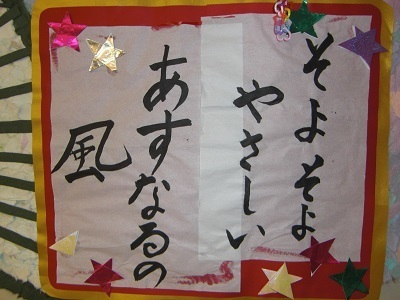 そよそよ
やさしい
あすなるの
風